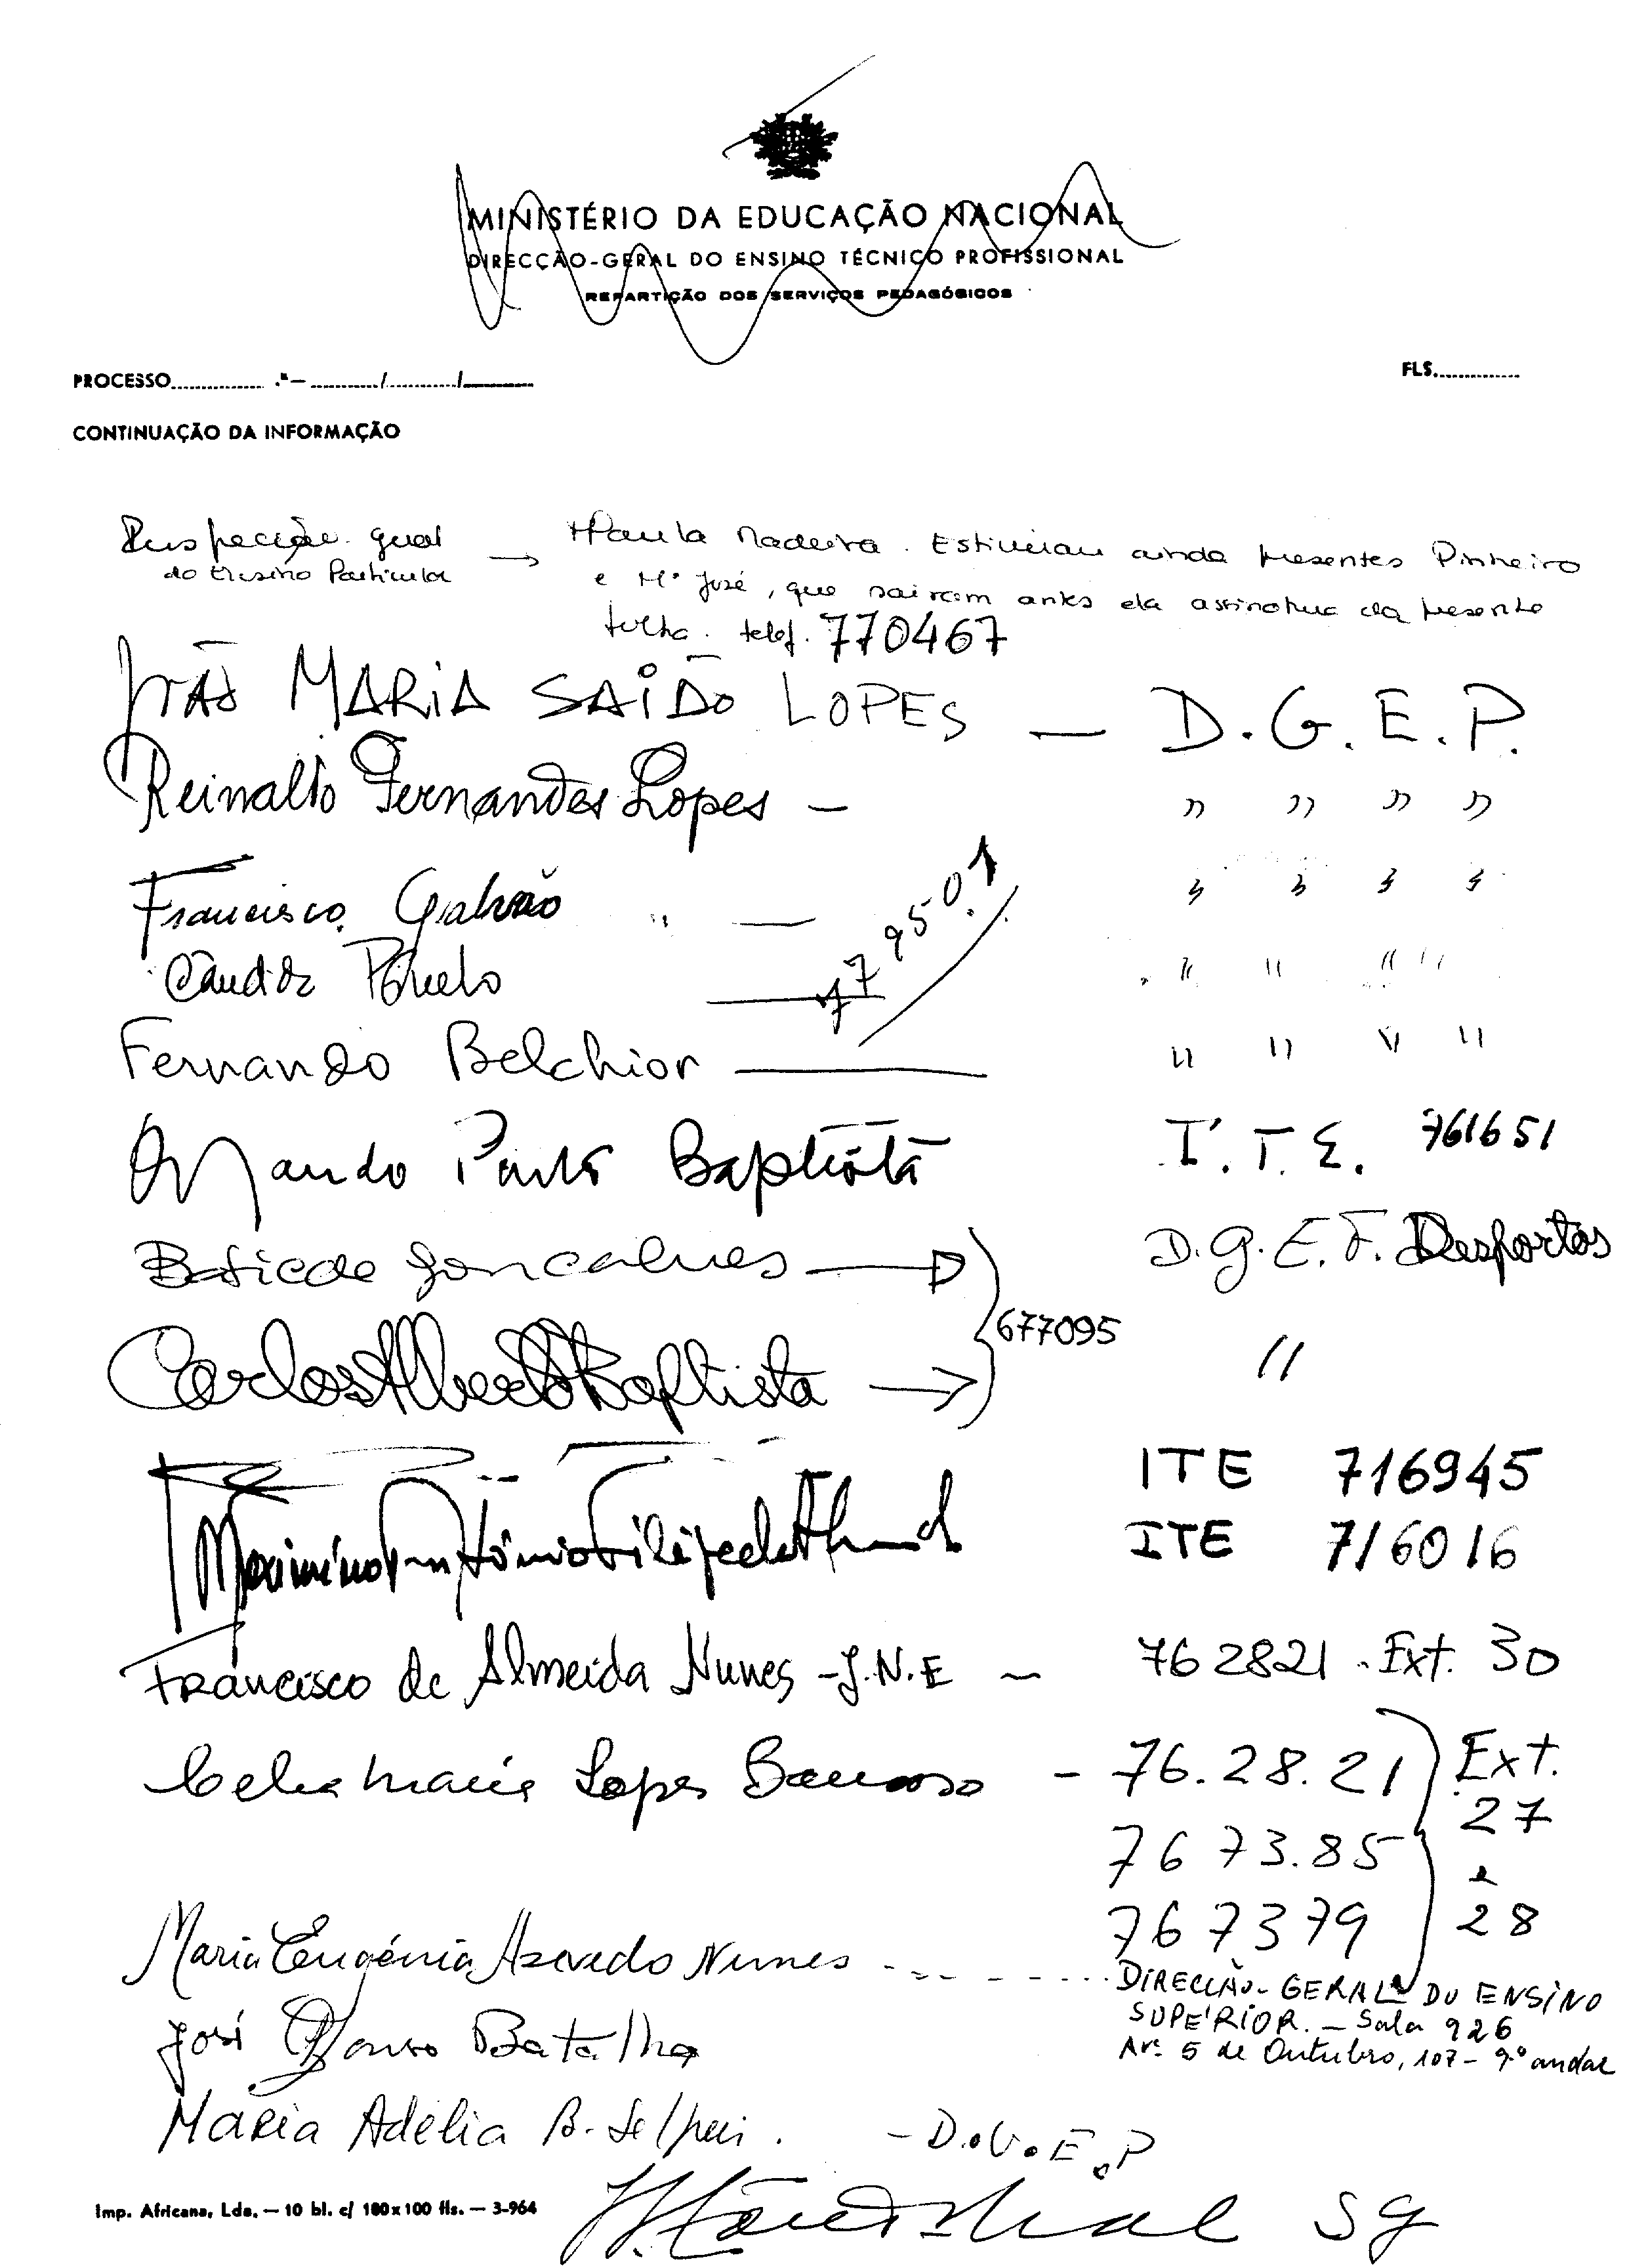 MINISTÉRIO DA EDUCAÇÃO NACIONAL
DIRECÇÃO-GERAL DO ENSINO TÉCNICO PROFISSIONAL
REPARTIÇÃO DOS SERVIÇOS PEDAGÓGICOS
PROCESSO .º — / /
FLS.
CONTINUAÇÃO DA INFORMAÇÃO
Inspecção geral → Paula Madeira. Estiveram ainda presentes Pinheiro
do Ensino Particular e Mª José, que sairam antes da assinatura da presente
folha. telef. 770467
MARIA SAIDO LOPES — D.G.E.P.
Reinalto Fernandes Lopes — " " " "
Francisco Galvão " — " " " "
779501
Candida " " " "
Fernando Belchior — " " " "
Baptista I.T.E. 761651
Gonçalves → D.G.E.F. Desportos
677095
Carlos Alberto Baptista → "
ITE 716945
ITE 716016
Francisco de Almeida Nunes - J.N.E - 762821 - Ext. 30
Celia Maria Lopes Barroso - 76.28.21 Ext.
27
7673.85
e
767379 28
Maria Eugénia Azevedo Nunes - - - -
DIRECÇÃO-GERAL DO ENSINO
SUPERIOR. - Sala 926
Avª 5 de Outubro, 107 - 9º andar
José Afonso Batalha
MARIA Adélia B. - D.G.E.P
Imp. Africana, Lda. — 10 bl. c/ 100x100 fls. — 3-964
SG